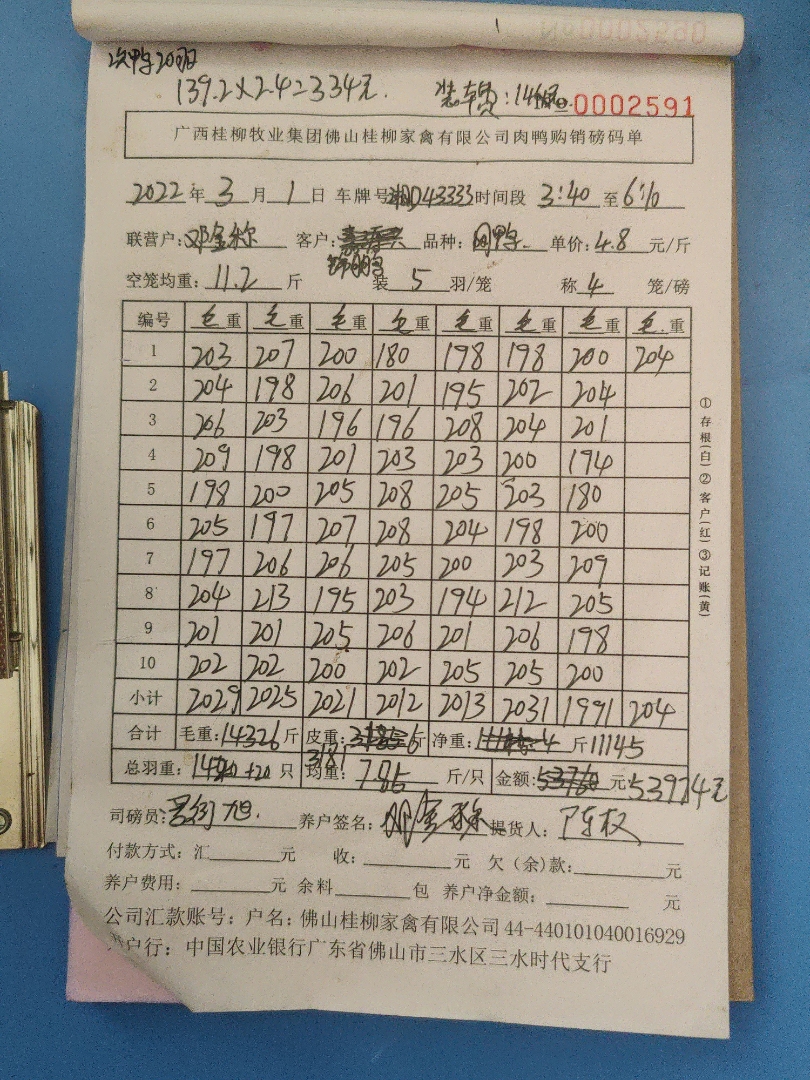 次鸭20只
139.2×2.4=334元. 装车费:146元 0002591
广西桂柳牧业集团佛山桂柳家禽有限公司肉鸭购销磅码单
2022年3月1日 车牌号湘D43333时间段 3:40 至 6:10
联营户:邓金称 客户: 品种:肉鸭 单价:4.8元/斤
空笼均重:11.2斤 装5羽/笼 称4笼/磅
编号 毛重 毛重 毛重 毛重 毛重 毛重 毛重 毛重
1 203 207 200 180 198 198 200 204
2 204 198 206 201 195 202 204
3 206 203 196 196 208 204 201
4 209 198 201 203 203 200 194
5 198 200 205 208 205 203 180
6 205 197 207 208 204 198 200
7 197 206 206 205 200 203 209
8 204 213 195 203 194 212 205
9 201 201 205 206 201 206 198
10 202 202 200 202 205 205 200
小计 2029 2025 2021 2012 2013 2031 1991 204
合计 毛重:14326斤 皮重: 斤 净重: 斤 11145
3181
总羽重: +20只 均重:7.85斤/只 金额: 元
司磅员: 养户签名: 提货人:陈权
付款方式:汇 元 收: 元 欠(余)款: 元
养户费用: 元 余料 包 养户净金额: 元
公司汇款账号:户名:佛山桂柳家禽有限公司44-440101040016929
户行:中国农业银行广东省佛山市三水区三水时代支行
①存根(白)②客户(红)③记账(黄)